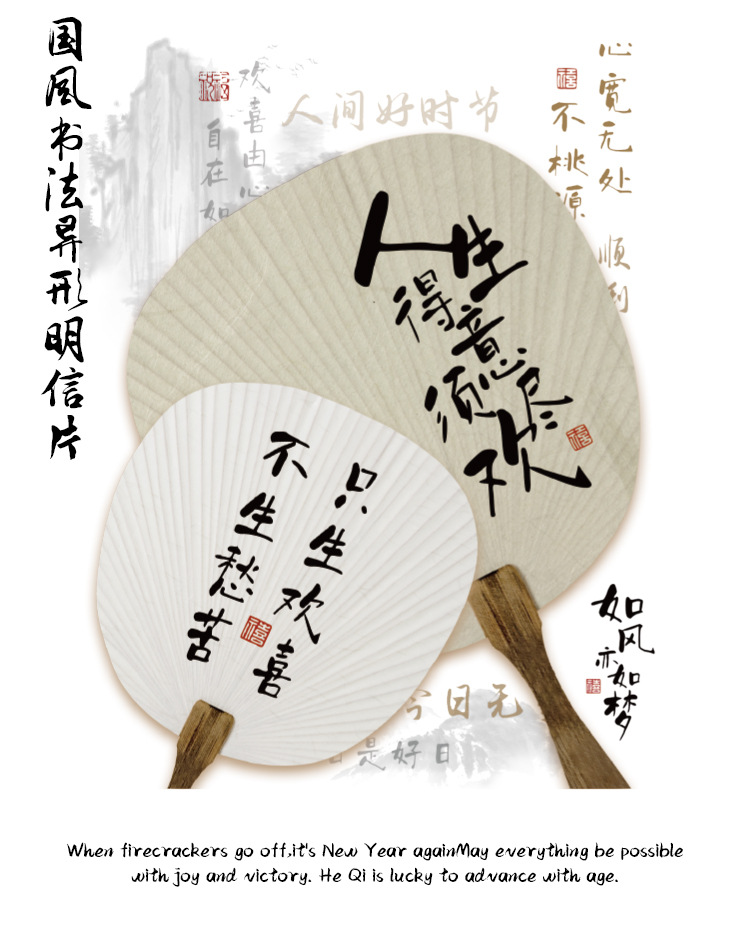 国风书法异形明信片
欢喜由心
自在如
人间好时节
心宽无处
不桃源
顺利
人生
得意
须尽
欢
只生欢喜
不生愁苦
如风
亦如梦
今日无
日是好日
When firecrackers go off,it's New Year againMay everything be possible
with joy and victory. He Qi is lucky to advance with age.